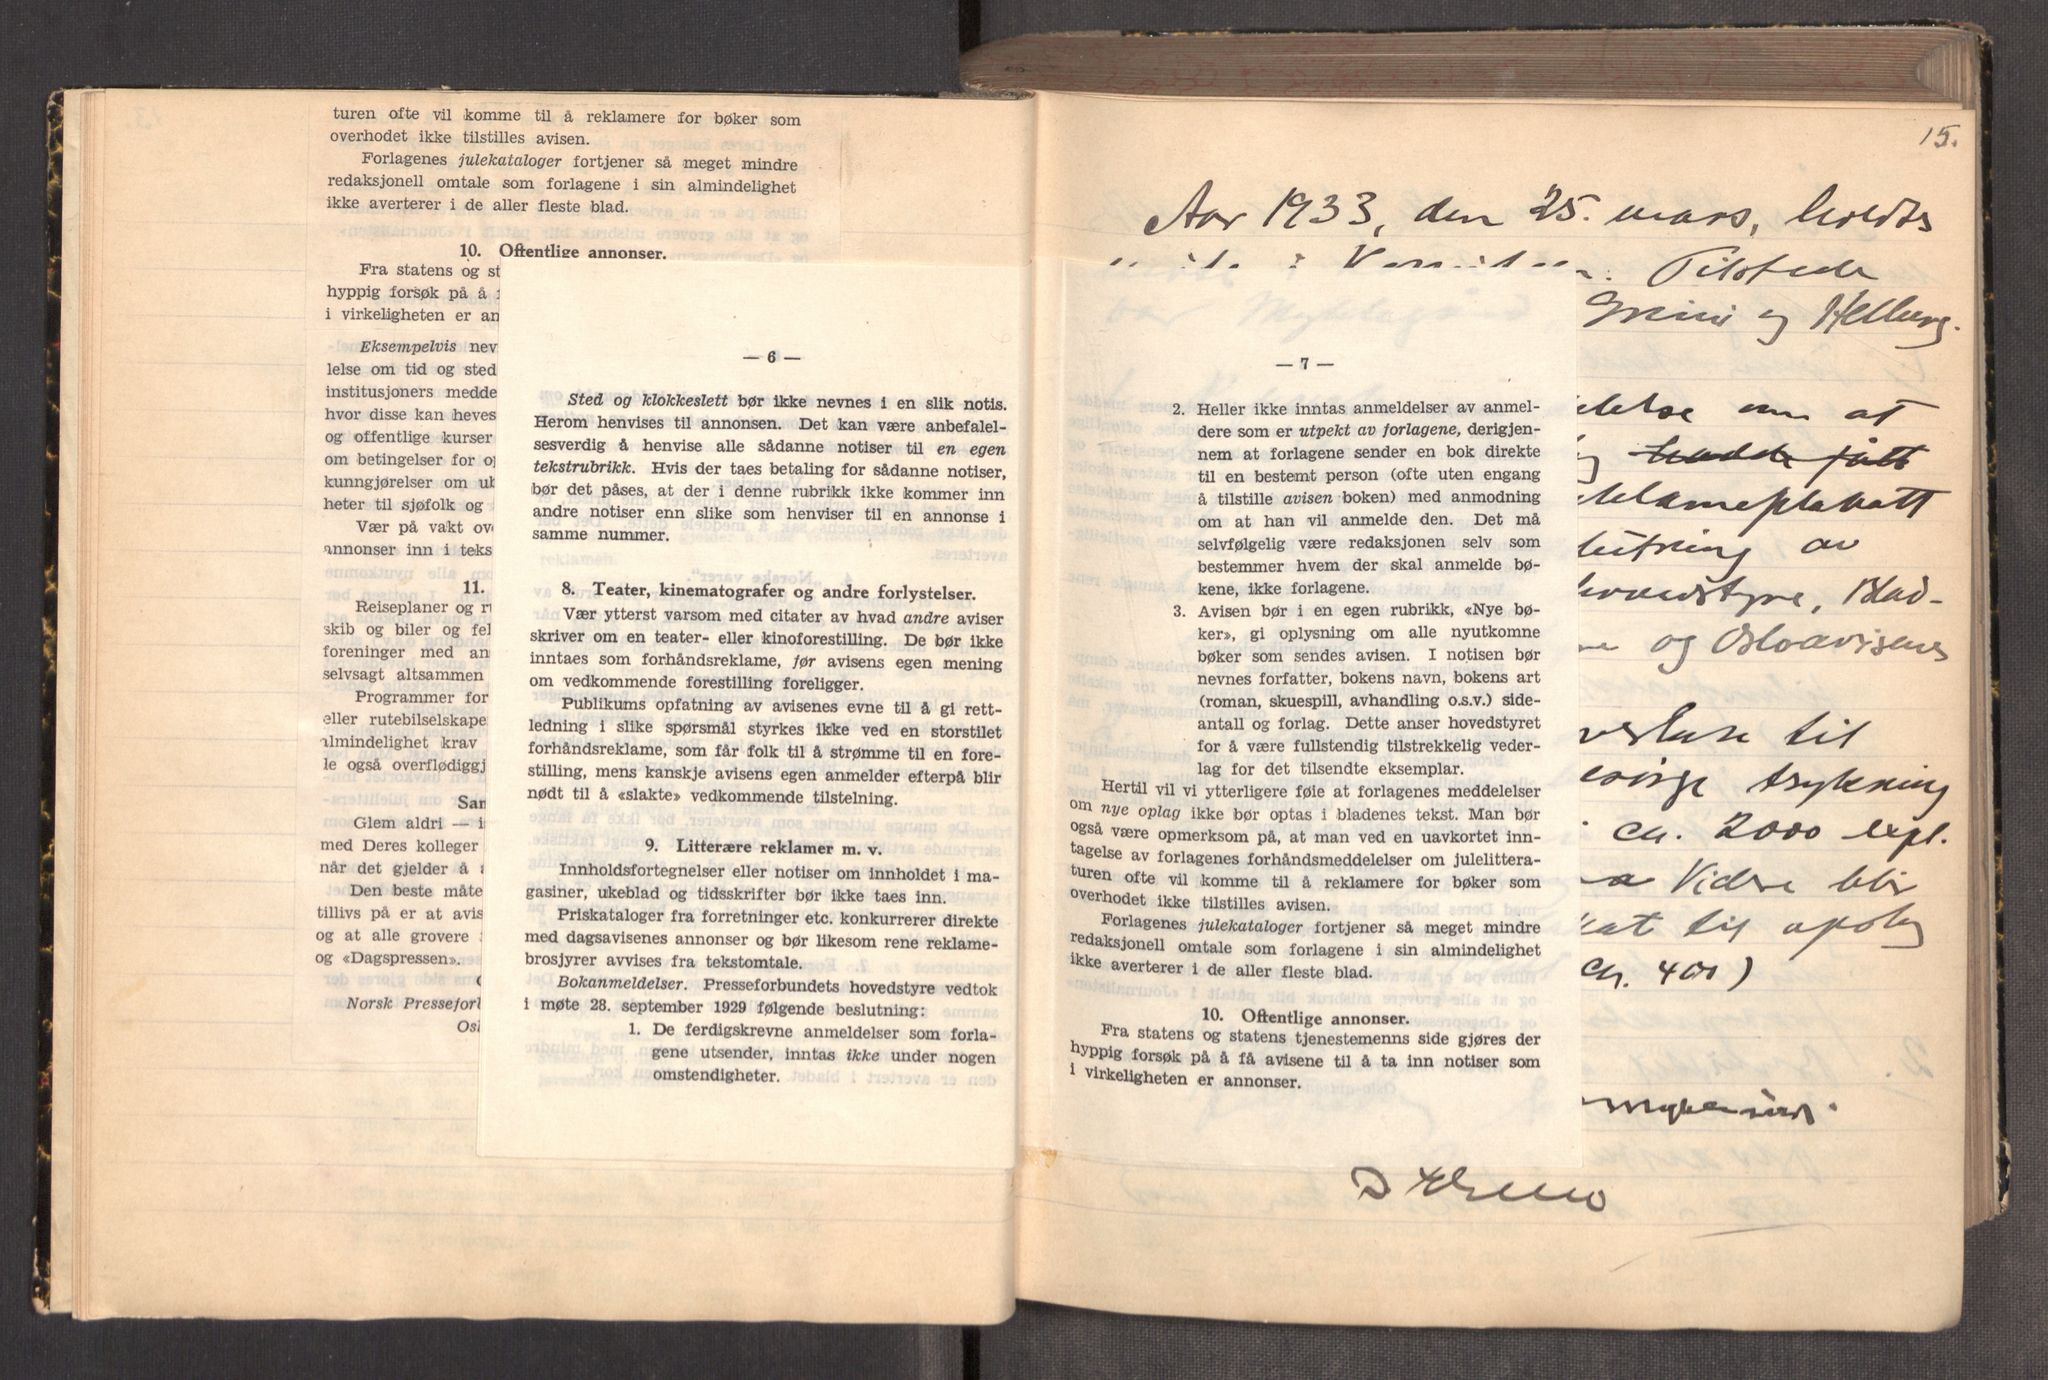 turen ofte vil komme til å reklamere for bøker som
overhodet ikke tilstilles avisen.
Forlagenes julekataloger fortjener så meget mindre
redaksjonell omtale som forlagene i sin almindelighet
ikke averterer i de aller fleste blad.
10. Offentlige annonser.
Fra statens og st
hyppig forsøk på å
i virkeligheten er an
Eksempelvis nev
lelse om tid og sted
institusjoners medde
hvor disse kan heves
og offentlige kurser
om betingelser for o
kunngjørelser om ut
heter til sjøfolk og
Vær på vakt ov
annonser inn i teks
11.
Reiseplaner og r
skib og biler og fel
foreninger med an
selvsagt altsammen
Programmer for
eller rutebilselskape
almindelighet krav
le også overflødiggj
Sam
Glem aldri — i
med Deres kolleger
når det gjelder å
Den beste måte
tillivs på er at avis
og at alle grovere
og «Dagspressen».
Norsk Presseforb
Osl
— 6 —
Sted og klokkeslett bør ikke nevnes i en slik notis.
Herom henvises til annonsen. Det kan være anbefalel-
sesverdig å henvise alle sådanne notiser til en egen
tekstrubrikk. Hvis der taes betaling for sådanne notiser,
bør det påses, at der i denne rubrikk ikke kommer inn
andre notiser enn slike som henviser til en annonse i
samme nummer.
8. Teater, kinematografer og andre forlystelser.
Vær ytterst varsom med citater av hvad andre aviser
skriver om en teater- eller kinoforestilling. De bør ikke
inntaes som forhåndsreklame, før avisens egen mening
om vedkommende forestilling foreligger.
Publikums opfatning av avisenes evne til å gi rett-
ledning i slike spørsmål styrkes ikke ved en storstilet
forhåndsreklame, som får folk til å strømme til en fore-
stilling, mens kanskje avisens egen anmelder efterpå blir
nødt til å «slakte» vedkommende tilstelning.
9. Litterære reklamer m. v.
Innholdsfortegnelser eller notiser om innholdet i ma-
gasiner, ukeblad og tidsskrifter bør ikke taes inn.
Priskataloger fra forretninger etc. konkurrerer direkte
med dagsavisenes annonser og bør likesom rene reklame-
brosjyrer avvises fra tekstomtale.
Bokanmeldelser. Presseforbundets hovedstyre vedtok
i møte 28. september 1929 følgende beslutning:
1. De ferdigskrevne anmeldelser som forla-
gene utsender, inntas ikke under nogen
omstendigheter.
15.
Aar 1933, den 25. mars, holdtes
Tilstede
Greini og Hellberg.
— 7 —
2. Heller ikke inntas anmeldelser av anmel-
dere som er utpekt av forlagene, derigjen-
nem at forlagene sender en bok direkte
til en bestemt person (ofte uten engang
å tilstille avisen boken) med anmodning
om at han vil anmelde den. Det må
selvfølgelig være redaksjonen selv som
bestemmer hvem der skal anmelde bø-
kene, ikke forlagene.
3. Avisen bør i en egen rubrikk, «Nye bø-
ker», gi oplysning om alle nyutkomne
bøker som sendes avisen. I notisen bør
nevnes forfatter, bokens navn, bokens art
(roman, skuespill, avhandling o.s.v.) side-
antall og forlag. Dette anser hovedstyret
for å være fullstendig tilstrekkelig veder-
lag for det tilsendte eksemplar.
Hertil vil vi ytterligere føie at forlagenes meddelelser
om nye oplag ikke bør optas i bladenes tekst. Man bør
også være opmerksom på, at man ved en uavkortet inn-
tagelse av forlagenes forhåndsmeddelelser om julelittera-
turen ofte vil komme til å reklamere for bøker som
overhodet ikke tilstilles avisen.
Forlagenes julekataloger fortjener så meget mindre
redaksjonell omtale som forlagene i sin almindelighet
ikke averterer i de aller fleste blad.
10. Offentlige annonser.
Fra statens og statens tjenestemenns side gjøres der
hyppig forsøk på å få avisene til å ta inn notiser som
i virkeligheten er annonser.
delse om at
hadde fått
klameplakatt
slutning av
hovedstyre, Blad-
og Osloavisenes
til
sørge trykning
ca. 2000 expl.
Videre blir
kat til opslag
ca. 400)